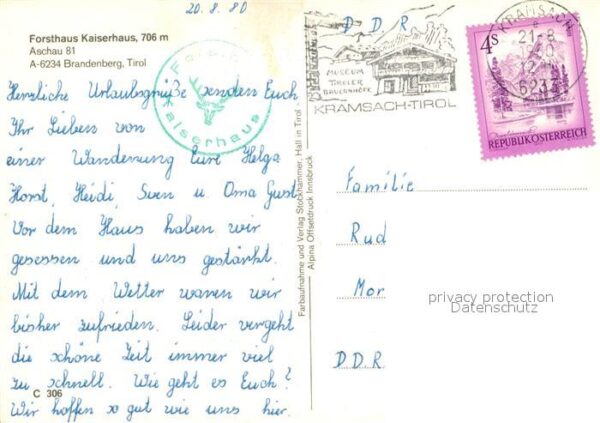 20.8.80
Forsthaus Kaiserhaus, 706 m
Aschau 81
A-6234 Brandenberg, Tirol
Forsthaus
Kaiserhaus
Herzliche Urlaubsgrüße senden Euch
Ihr Lieben von
einer Wanderung Eure Helga
Horst, Heidi, Sven u. Oma Gust
Vor dem Haus haben wir
gesessen und uns gestärkt.
Mit dem Wetter waren wir
bisher zufrieden. Leider vergeht
die schöne Zeit immer viel
zu schnell. Wie geht es Euch?
Wir hoffen so gut wie uns hier.
C 306
Farbaufnahme und Verlag Stockhammer, Hall in Tirol
Alpina Offsetdruck Innsbruck
DDR
MUSEUM
TIROLER
BAUERNHÖFE
KRAMSACH-TIROL
KRAMSACH
21-8
6233
4S
REPUBLIK ÖSTERREICH
Familie
Rud
Mor
DDR
privacy protection
Datenschutz